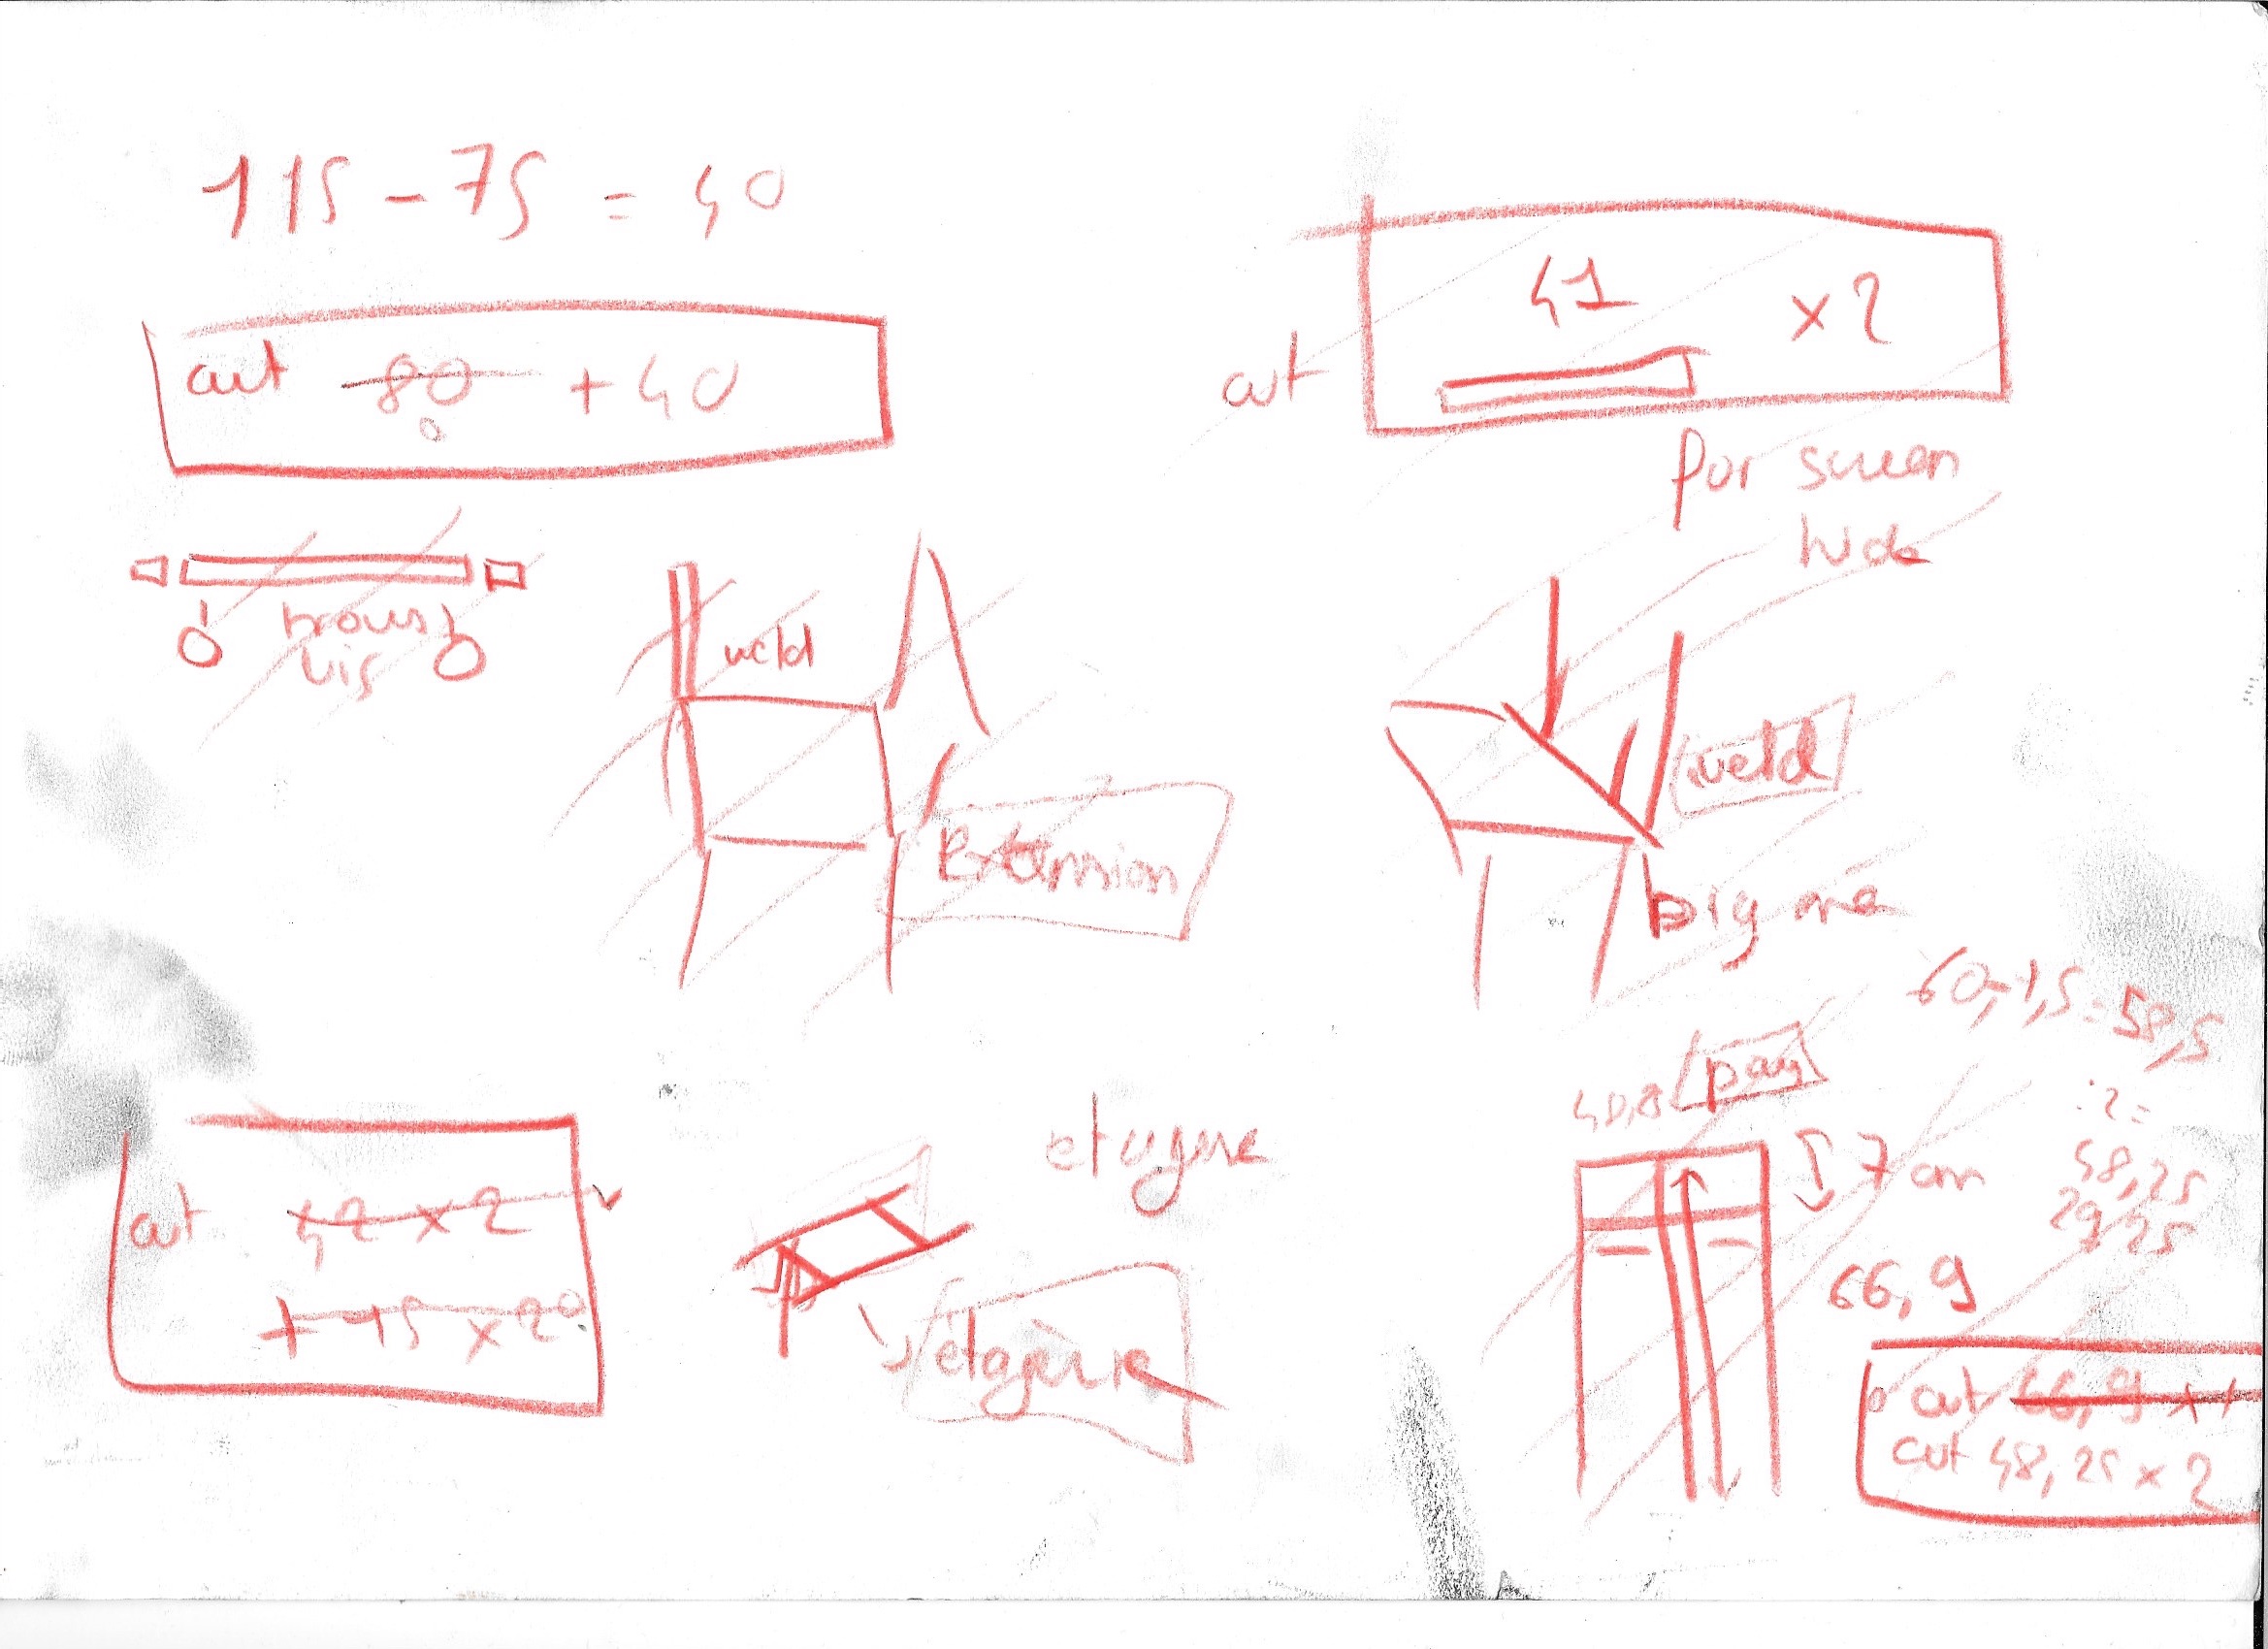 115 - 75 = 40
cut 80 + 40
41 x 2
cut
for screen
hide
trous
vis
weld
Extension
weld
big one
60,-1,5 = 58,5
: 2 =
48,25
29,25
40,8
7 cm
66,9
cut 66,9 x 1
cut 48,25 x 2
cut 42 x 2
+ 15 x 2
etagere
étagère